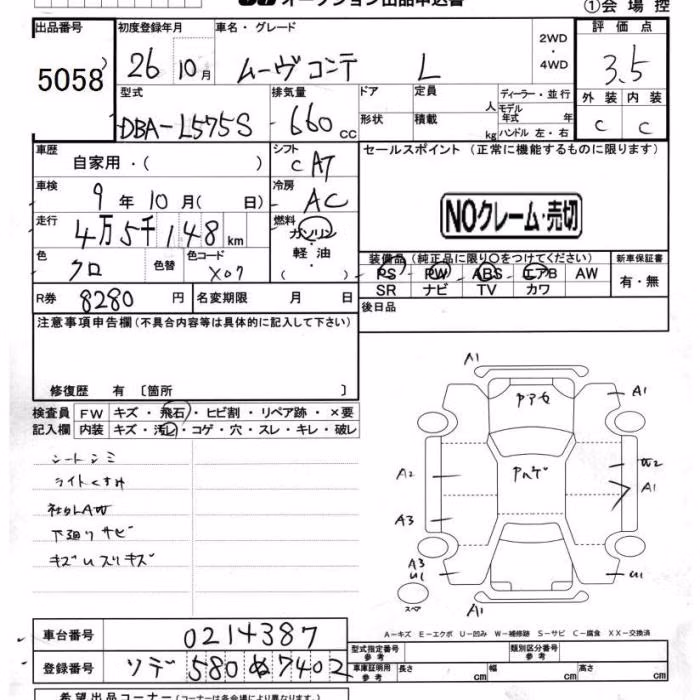 オークション出品申込書
①会場控
出品番号 初度登録年月 車名・グレード 2WD・4WD 評価点
5058 26 10月 ムーヴコンテ L 3.5
型式 排気量 ドア 定員 人 ディーラー・並行
モデル年式 年
外装 内装
DBA-L575S 660 cc 形状 積載 kg ハンドル 左・右 C C
車歴 自家用・( ) シフト CAT
セールスポイント (正常に機能するものに限ります)
車検 9年10月( 日) 冷房 AC
NOクレーム・売切
走行 4万5千148km 燃料 ガソリン・軽油・( )
色 クロ 色替 色コード X07
装備品 (純正品に限り○をつけてください) 新車保証書
PS PW ABS エアB AW 有・無
SR ナビ TV カワ
R券 8280円 名変期限 月 日
後日品
注意事項申告欄(不具合内容等は具体的に記入して下さい)
修復歴 有 〔箇所 〕
検査員記入欄 FW キズ・飛石・ヒビ割・リペア跡・×要
内装 キズ・汚レ・コゲ・穴・スレ・キレ・破レ
シートシミ
ライトくすみ
社外AW
下廻りサビ
キズUスリキズ
A1
A1
A2
W2
A1
A3
A3
U1
U1
スペア
A1
A-キズ E-エクボ U-凹み W-補修跡 S-サビ C-腐食 XX-交換済
車台番号 0214387
型式指定番号 参考 類別区分番号 参考
登録番号 ソデ 580 ぬ 7402
車庫証明用 参考 長さ cm 幅 cm 高さ cm
希望出品コーナー(コーナーは各会場により異なります。)